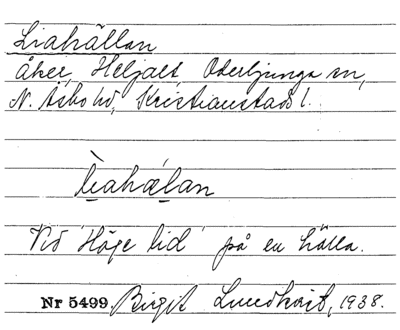 Liahällan
åker, Heljalt, Oderljunga sn,
N. Åsbo hd, Kristianstads l.
lìahælan
Vid 'Höge lid' på en hälla.
Nr 5499. Birgit Lundkvist, 1938.